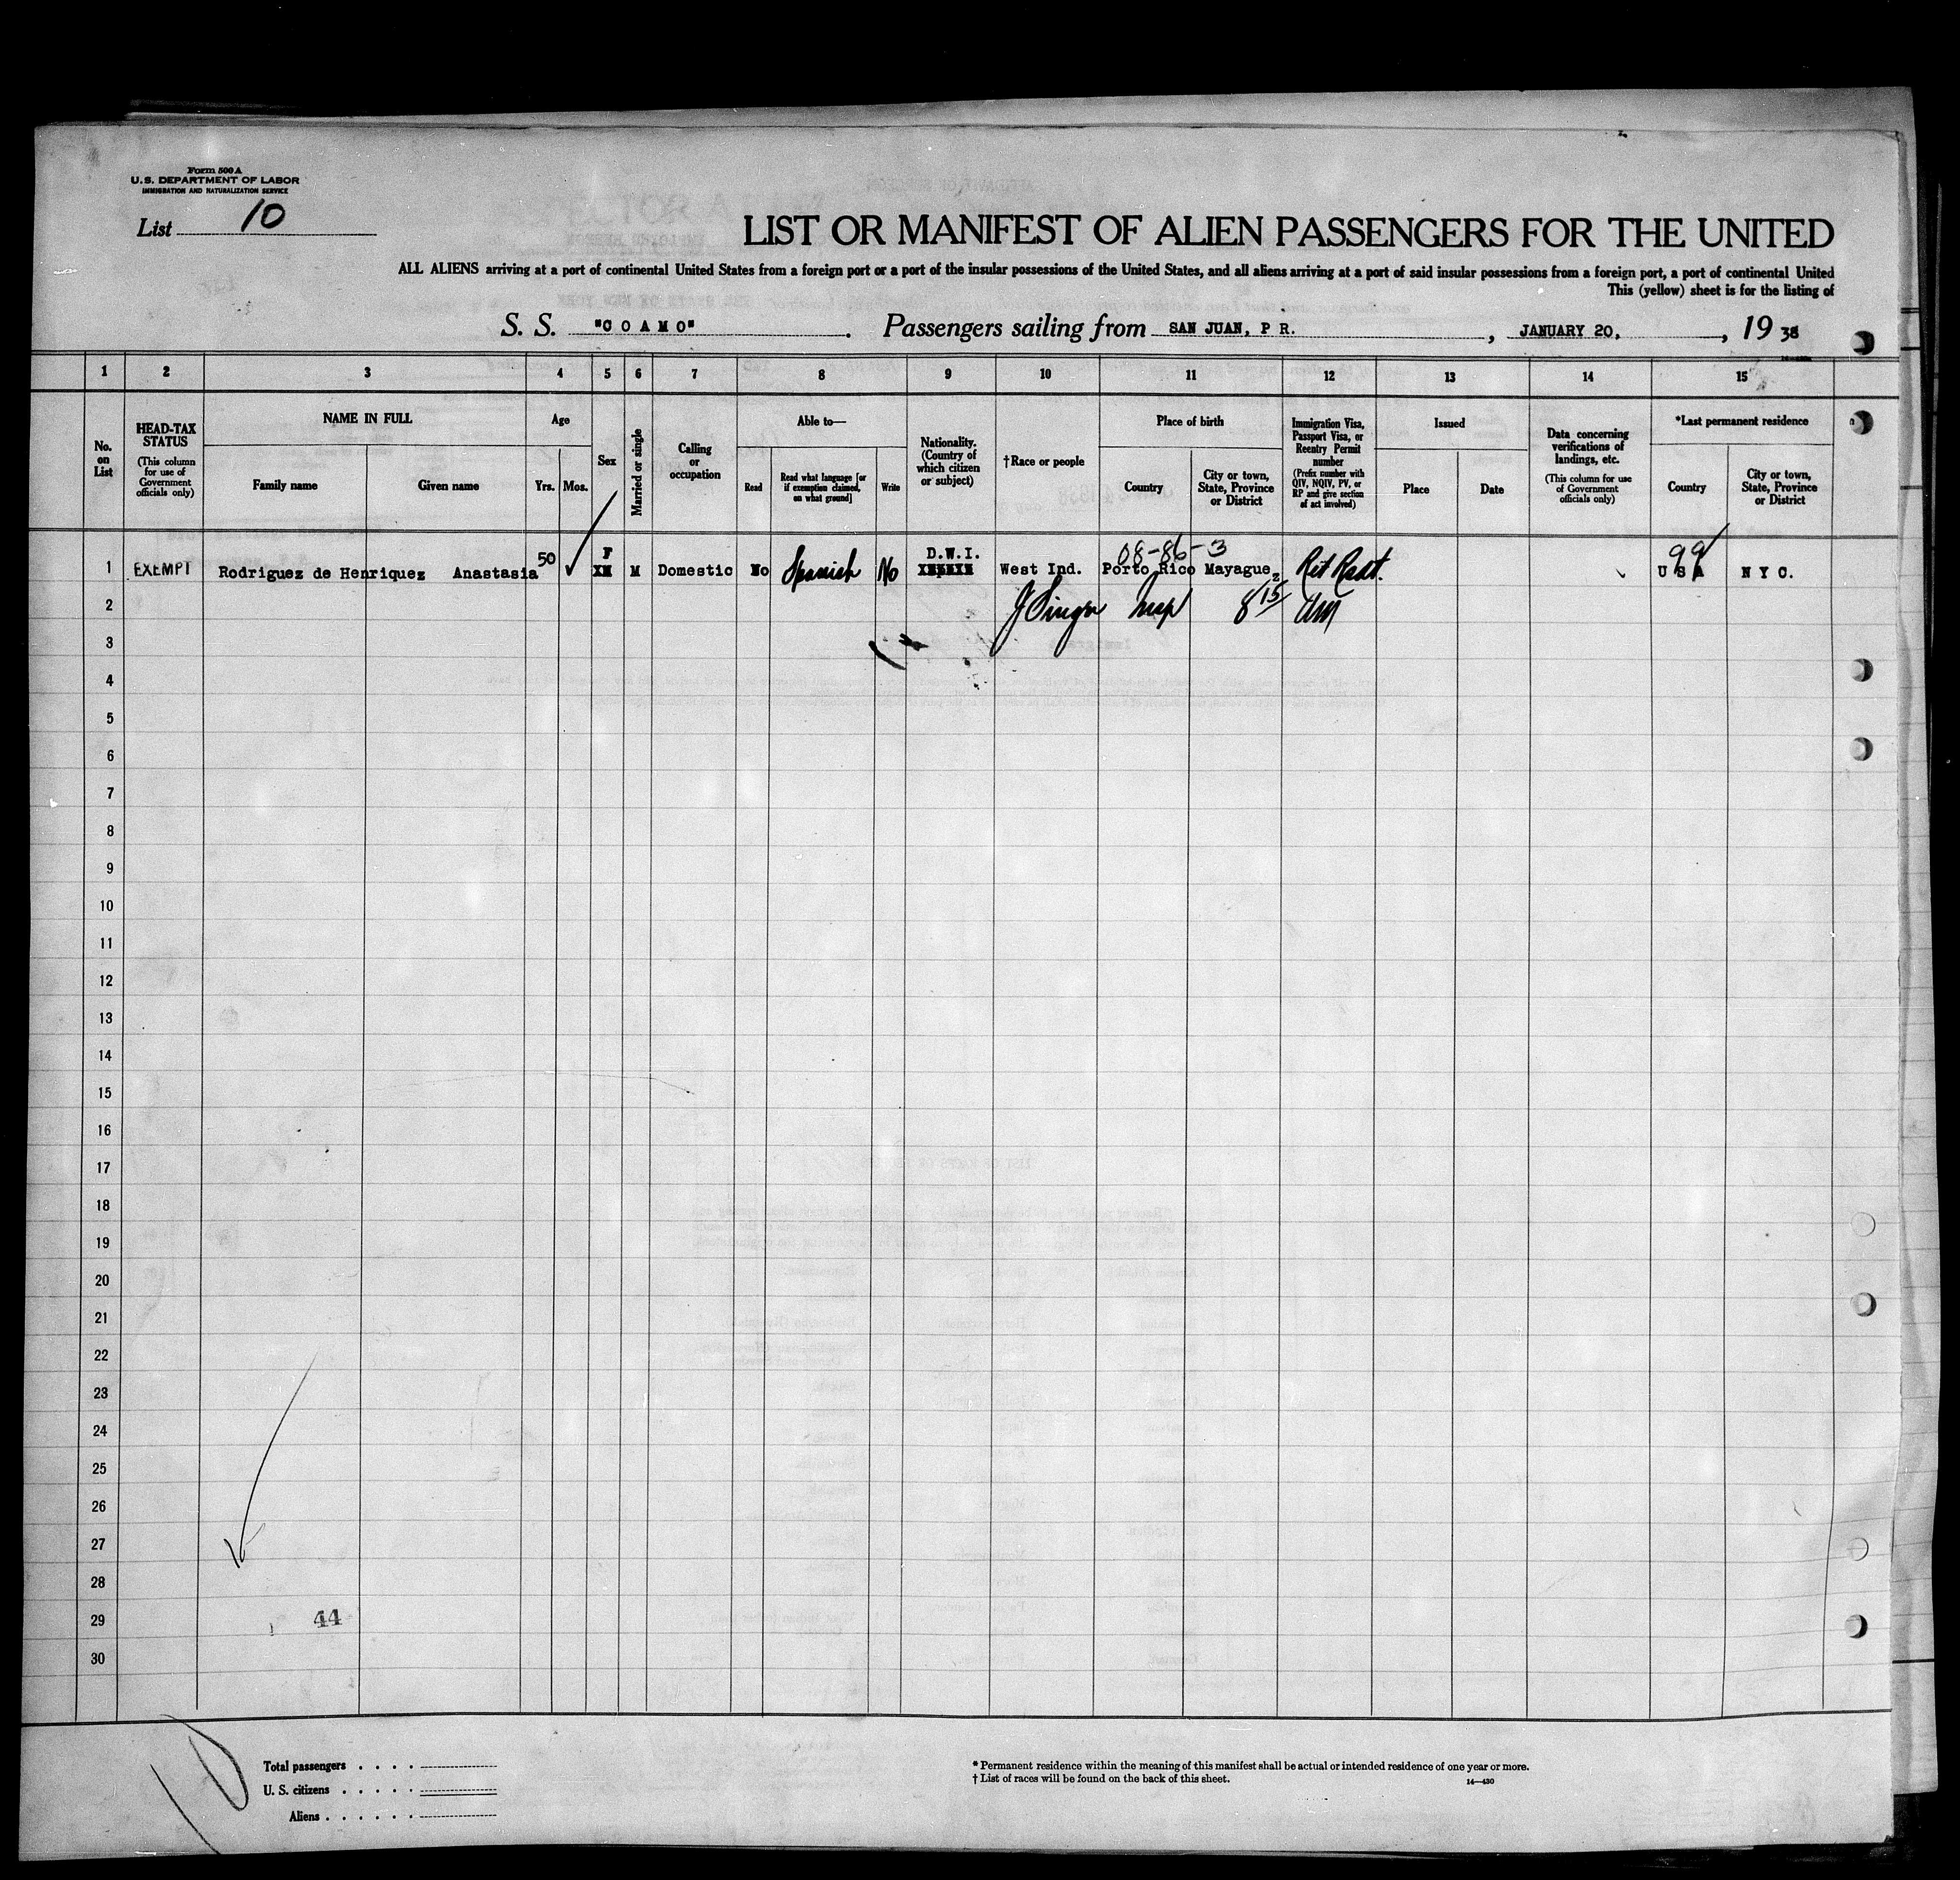 Form 500 A
U. S. DEPARTMENT OF LABOR
IMMIGRATION AND NATURALIZATION SERVICE
List 10
LIST OR MANIFEST OF ALIEN PASSENGERS FOR THE UNITED
ALL ALIENS arriving at a port of continental United States from a foreign port or a port of the insular possessions of the United States, and all aliens arriving at a port of said insular possessions from a foreign port, a port of continental United
This (yellow) sheet is for the listing of
S. S. "COAMO". Passengers sailing from SAN JUAN, P R., JANUARY 20, , 19 38
1 2 3 4 5 6 7 8 9 10 11 12 13 14 15
No. on List
HEAD-TAX STATUS (This column for use of Government officials only)
NAME IN FULL
Family name
Given name
Age
Yrs.
Mos.
Sex
Married or single
Calling or occupation
Able to—
Read
Read what language [or if exemption claimed, on what ground]
Write
Nationality. (Country of which citizen or subject)
†Race or people
Place of birth
Country
City or town, State, Province or District
Immigration Visa, Passport Visa, or Reentry Permit number (Prefix number with QIV, NQIV, PV, or RP and give section of act involved)
Issued
Place
Date
Data concerning verifications of landings, etc. (This column for use of Government officials only)
*Last permanent residence
Country
City or town, State, Province or District
50 F D.W.I. 08-86-3 99
1 EXEMPT Rodriguez de Henriquez Anastasia M Domestic No Spanish No West Ind. Porto Rico Mayaguez Ret Rsdt. U S A N Y C.
2 Insp 8 15 AM
3
4
5
6
7
8
9
10
11
12
13
14
15
16
17
18
19
20
21
22
23
24
25
26
27
28
29 44
30
10
Total passengers . . . .
U. S. citizens . . . . .
Aliens . . . . . .
* Permanent residence within the meaning of this manifest shall be actual or intended residence of one year or more.
† List of races will be found on the back of this sheet.
14—430